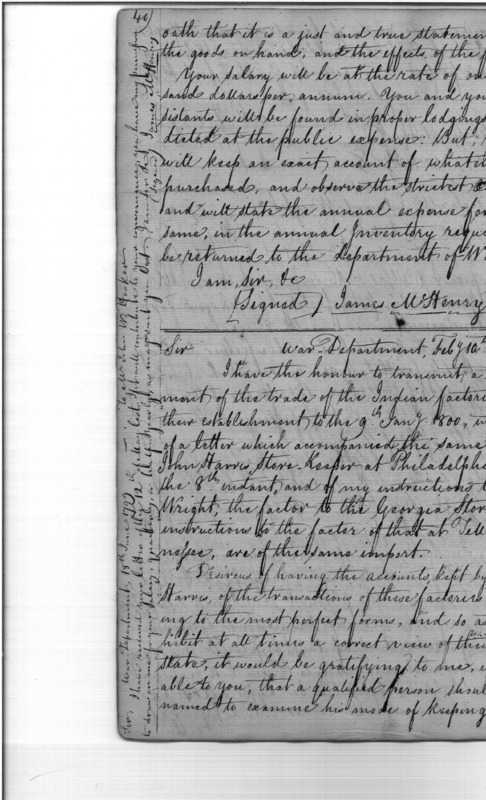 40)
oath that it is a just and true statemen
the goods on hand, and the effects of the f
Your salary will be at the rate of on
sand dollars per, annum. You and yo
sistants will be found in proper lodgings
dieted at the public expense: But,
will keep an exact account of what i
purchased, and observe the strictest
and will state the annual expense for
same, in the annual Inventory requ
be returned to the Department of W
I am, Sir, &c
(Signed) James McHenry
Sir War Department, Feby 10th
I have the honour to transmit, a
ment of the trade of the Indian factorie
their establishment to the 9th Jany 1800, w
of a letter which accompanied the same
John Harris, Store Keeper at Philadelphi
the 8th instant, and of my instructions t
Wright, the factor to the Georgia Stor
instructions to the factor of that at Tell
nessee, are of the same import.
Desirous of having the accounts, kept by
Harris, of the transactions of these factories
ing to the most perfect forms, and so as
hibit at all times a correct view of their
state, it would be gratifying to me, i
able to you, that a qualified person shoul
named to examine his mode of keeping
Sir, War Department, 18th June 1799
I have received your letter of the 12th
James McHenry
(Signed)